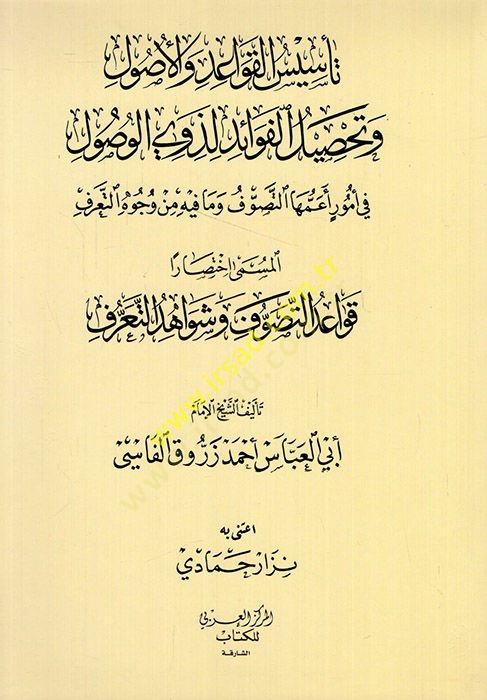 تَأْسِيسُ القَوَاعِدِ وَالأُصُولِ
وَتَحْصِيلُ الفَوَائِدِ لِذَوِي الوُصُولِ
فِي أُمُورٍ أَعَمُّهَا التَّصَوُّفُ وَمَا فِيهِ مِنْ وُجُوهِ التَّعَرُّفِ
المُسَمَّى اخْتِصَارًا
قَوَاعِدُ التَّصَوُّفِ وَشَوَاهِدُ التَّعَرُّفِ
تَأْلِيفُ الشَّيْخِ الإِمَامِ
أَبِي العَبَّاسِ أَحْمَدَ زَرُّوقٍ الفَاسِيِّ
اعتنى به
نِزَار حَمَّادِي
المركز العربي
للكتاب
الشارقة